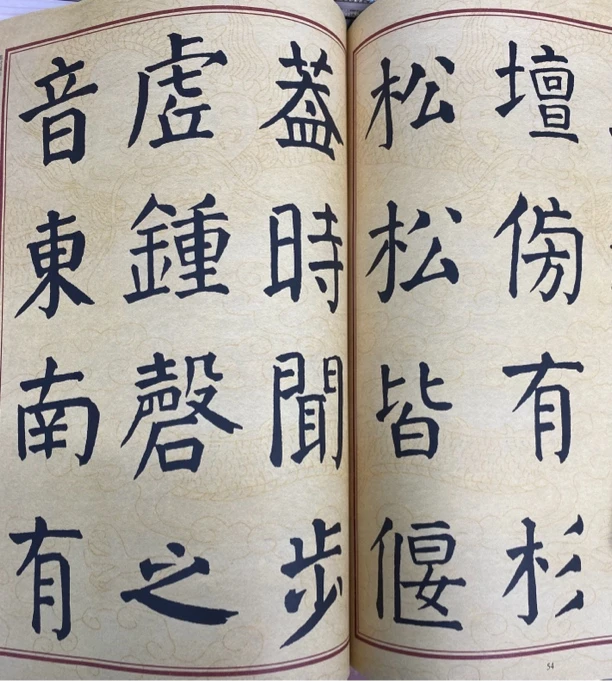 壇傍有杉
松松皆偃
蓋時聞步
虚鍾磬之
音東南有
54